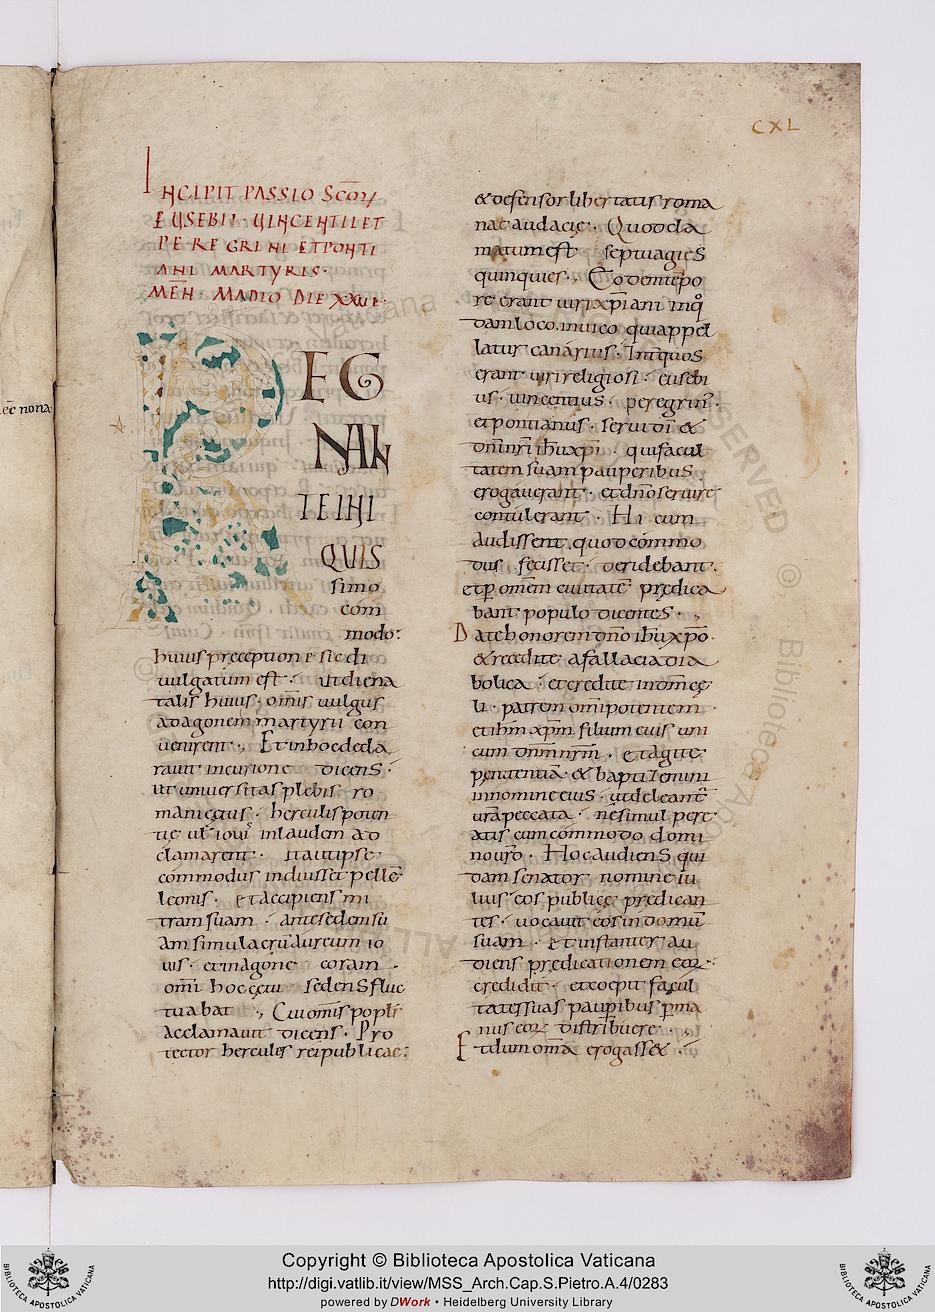 CXL
INCIPIT PASSIO SCŌR
EUSEBII · UINCENTII ET
PEREGRINI ET PONTI
ANI MARTYRIS ·
MEN̄ · MADIO DIE XXVI ·
REG
NAN
TE INI
QUIS
simo
com
modo:
huius preception e sic di
uulgatum est · ut diena
talis huius · om̄is uulgus
ad agonem martyrii con
uenirent ·, Et in hoc decla
rauit incursione dicens ·
ut uniuersitas plebis ro
mani eius · herculis poten
tię ul ioui in laudem ad
clamarent · ita ut ipse
commodus induisset pellē
leonis · et accipiens mi
tram suam · ante sedem su
am simulacrū aureum io
uis · et in agone coram
om̄i hoc sedens fluc
tuabat ·, Cui om̄is popls
acclamauit dicens · Pro
tector hercules reipublicae:
& defensor libertatis roma
nae audacię · Quod cla
matum est septuagies
quinquies · Eodem tēpo
re erant uiri xp̄iani in q
dam loco . in uico qui appel
latur canarius · Inter quos
erant uiri religiosi · eusebi
us · uincentius · peregrin ·
et pontianus · serui dī &
dn̄i nr̄i ihū xp̄i · qui facul
tatem suam pauperibus
erogauerant · et dn̄o seruire
contulerant · Hi cum
audissent quod commo
dus fecisset · deridebant ·
et p om̄em ciuitatē predica
bant populo dicentes ·,
Date honorem dn̄o ihū xp̄o ·
& recedite a fallacia dia
bolica · et credite in dm̄ cę
li · patrem om̄ipotentem ·
et ihm̄ xp̄m filium eius uni
cum dn̄m nr̄m · et agite
penitentiā & baptizemini
in nomine eius · ut deleant
ur̄a peccata · ne simul pere
atis cum commodo domi
no ur̄o · Hoc audiens qui
dam senator nomine iu
lius · eos publice predican
tes · uocauit eos in domū
suam · et instanter au
diens predicationem eor ·
credidit · et coepit facul
tates suas paupibus p ma
nus eor distribuere ·,
Et dum om̄a erogass& ·
ec nona
Copyright © Biblioteca Apostolica Vaticana
http://digi.vatlib.it/view/MSS_Arch.Cap.S.Pietro.A.4/0283
powered by DWork • Heidelberg University Library